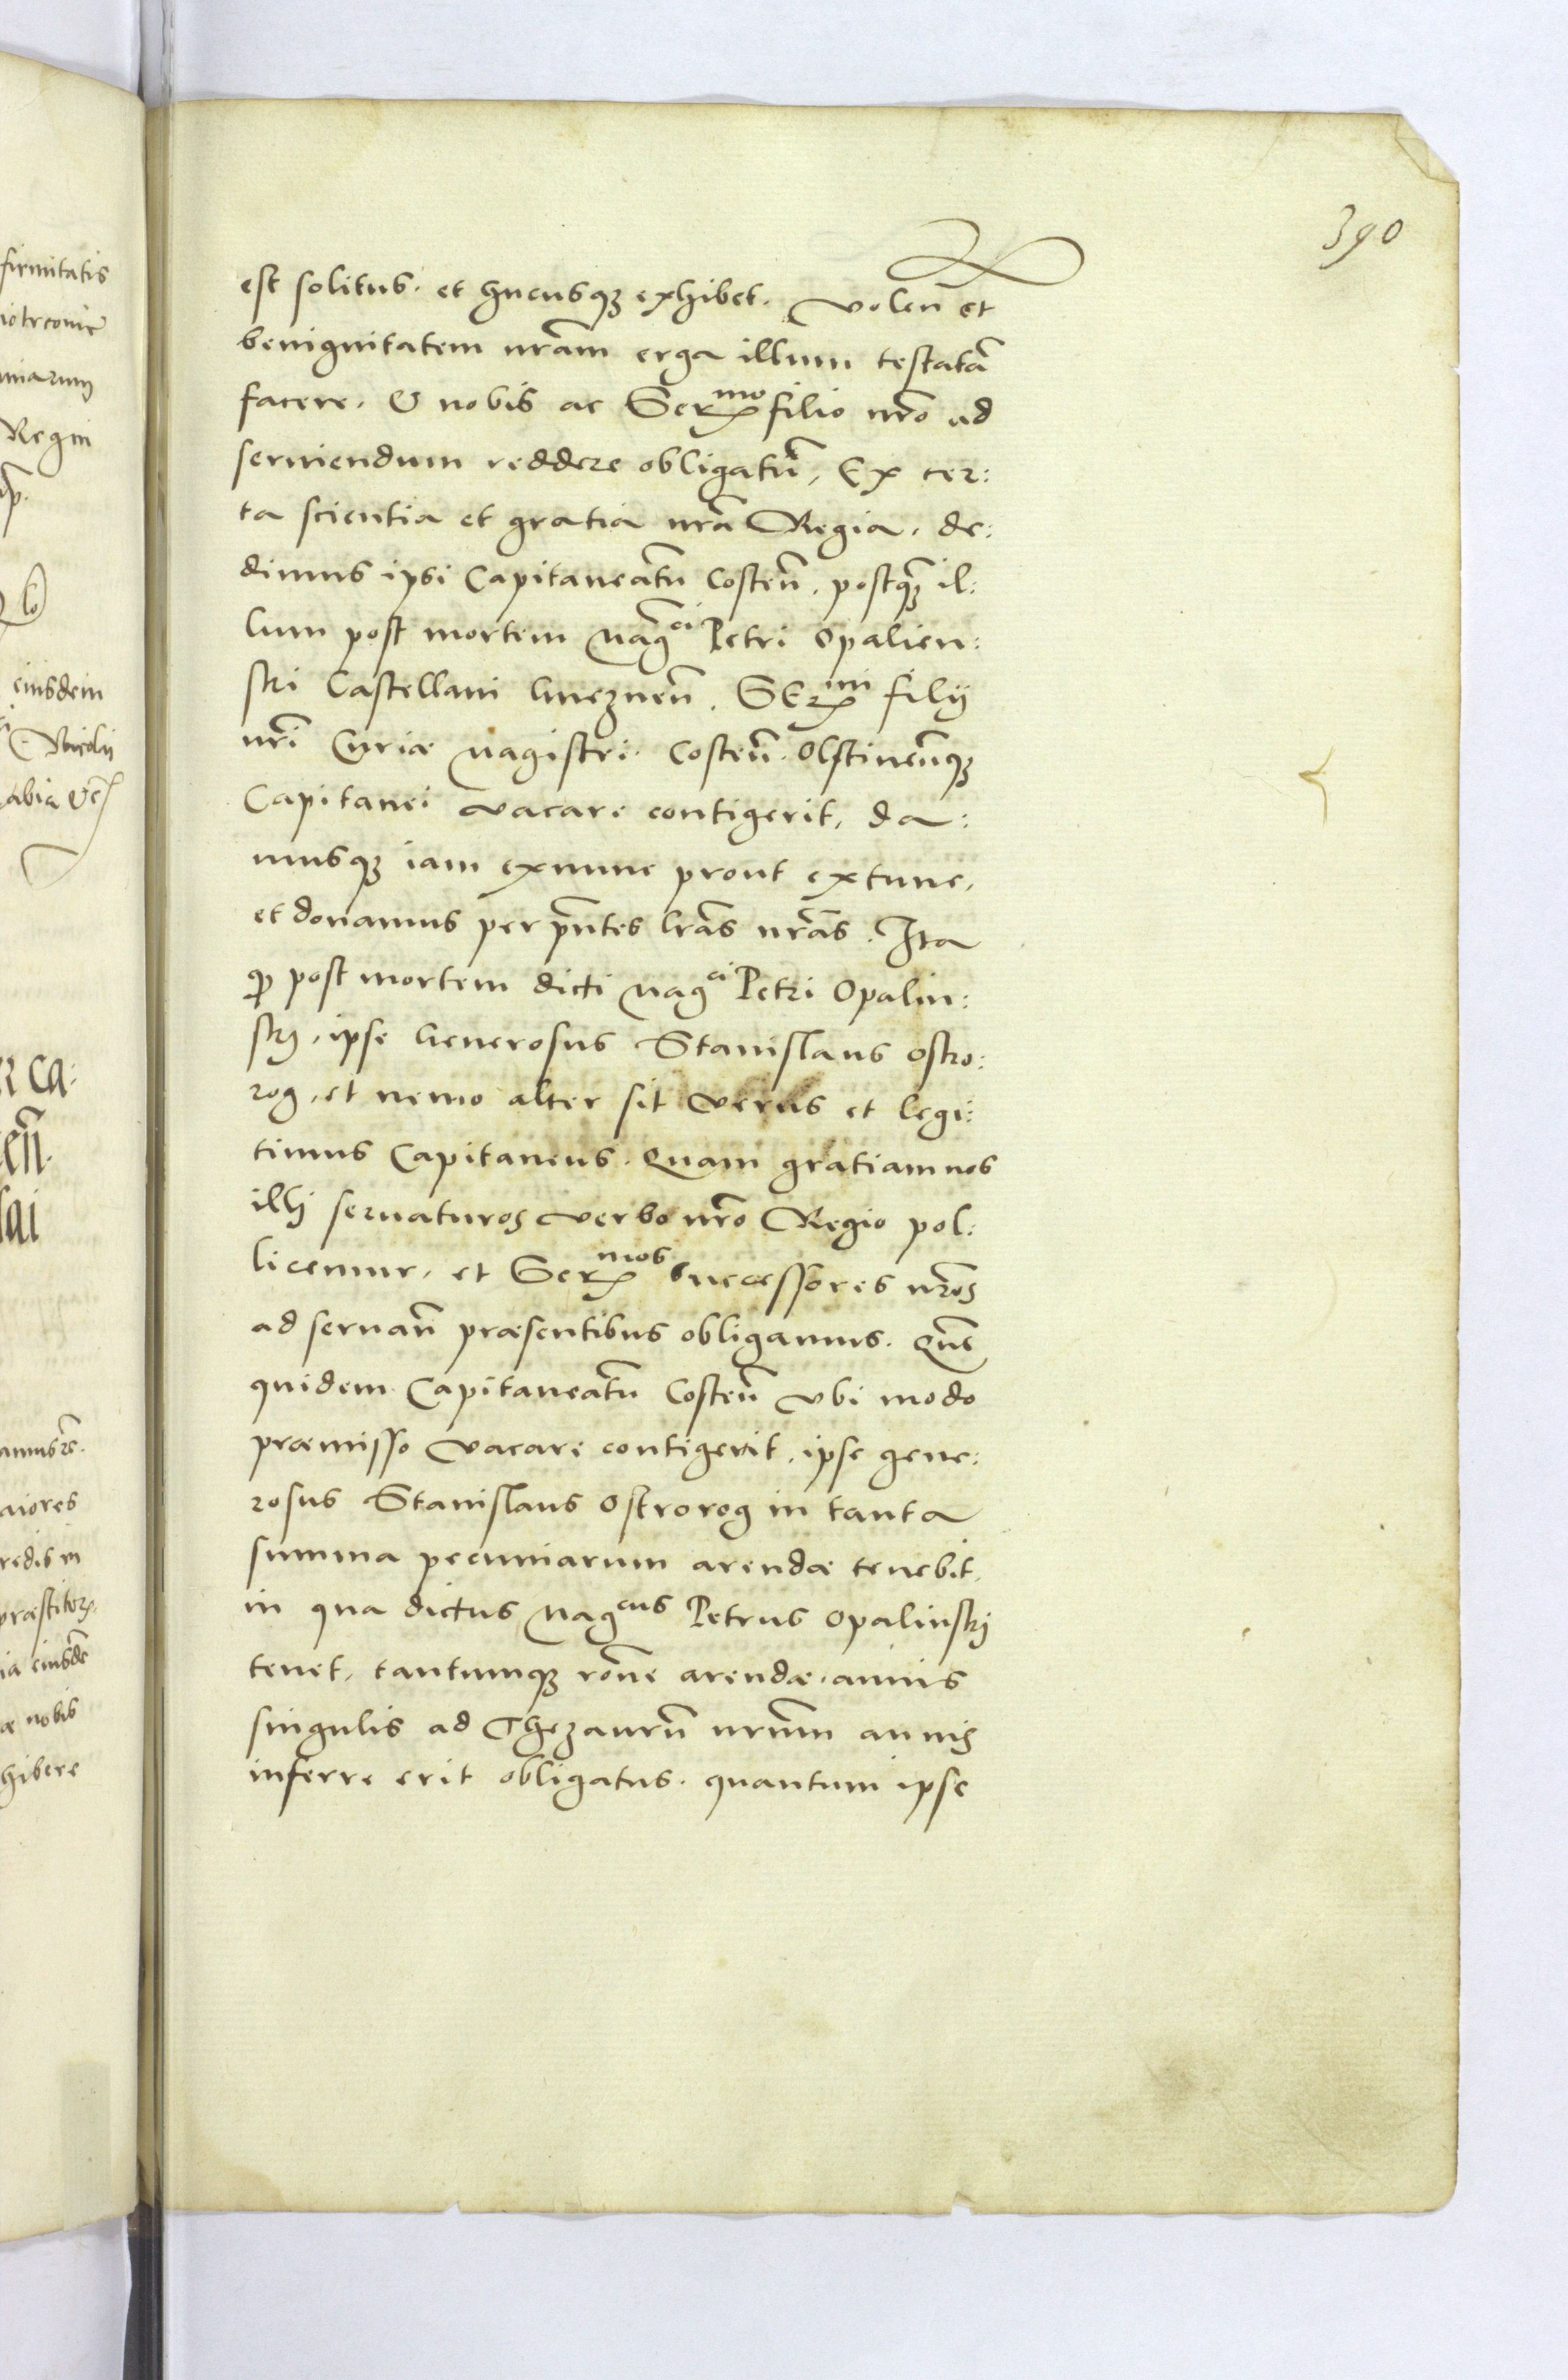 390
est solitus. et hucusq3 exhibet. volen̄ et
benignitatem nr̄am erga illum testatā
facere. & nobis ac Ser^mo filio nr̄o ad
seruiendum reddere obligatū, Ex cer:
ta scientia et gratia nr̄a Regia. de:
dimus ipsi Capitaneatū Costen̄. postq̄3 il:
lum post mortem Mag^ci Petri Opalien:
ski Castellani Gneznen̄. SEr^mi filij
nr̄i Curiæ Magistri. Costen̄. Olstinen̄q3
Capitanei vacare contigerit, da:
musq3 iam exnunc prout extunc,
et donamus per pn̄tes lr̄as nr̄as. Ita
qp post mortem dicti Mag^ci Petri Opalin:
skj, ipse Generosus Stanislaus Ostro:
rog, et nemo alter sit verus et legi:
timus Capitaneus. Quam gratiam nos
illj seruaturos verbo nr̄o Regio pol:
licemur, et Ser^mos successores nr̄os
ad seruan̄ præsentibus obligamus. Quē
quidem Capitaneatū Costen̄ vbi modo
præmisso vacare contigerit, ipse gene:
rosus Stanislaus Ostrorog in tanta
summa pecuniarum arendæ tenebit,
in qua dictus Mag^cus Petrus Opalinskj
tenet, tantumq3 rōne arendæ annis
singulis ad Thezaurū nr̄um annis
inferre erit obligatus. quantum ipse
firmitatis
Regni
eiusdem
abia &c
r ca:
aiores
redis in
præstitor
ia eiusdē
æ nobis
hibere